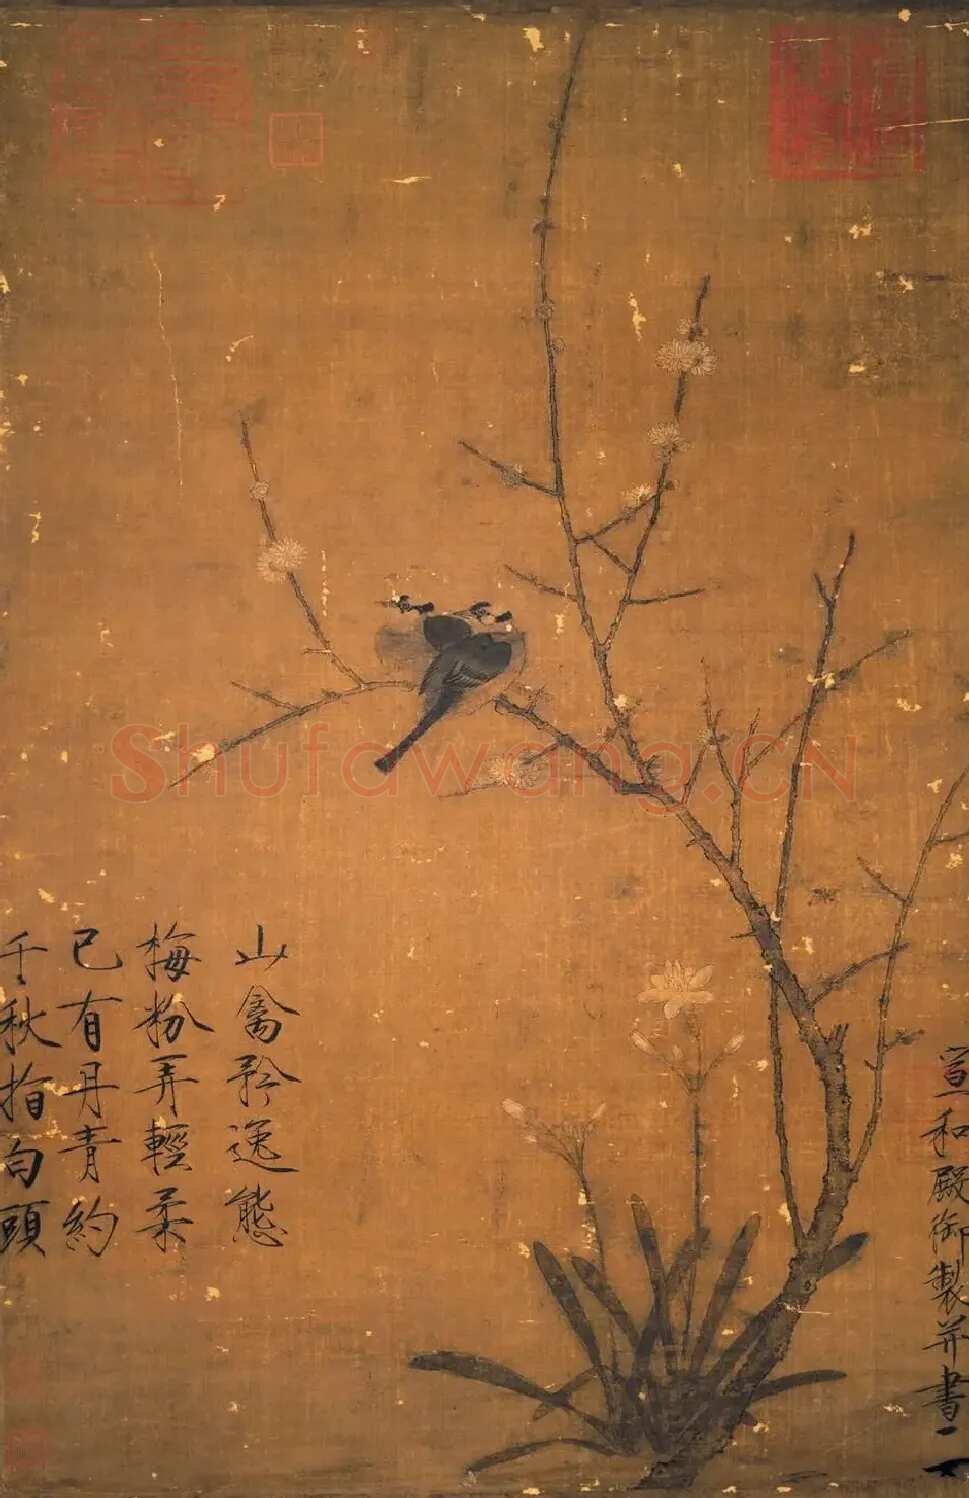 山禽矜逸態
梅粉弄輕柔
已有丹青約
千秋指白頭
宣和殿御製并書
Shufawang.CN